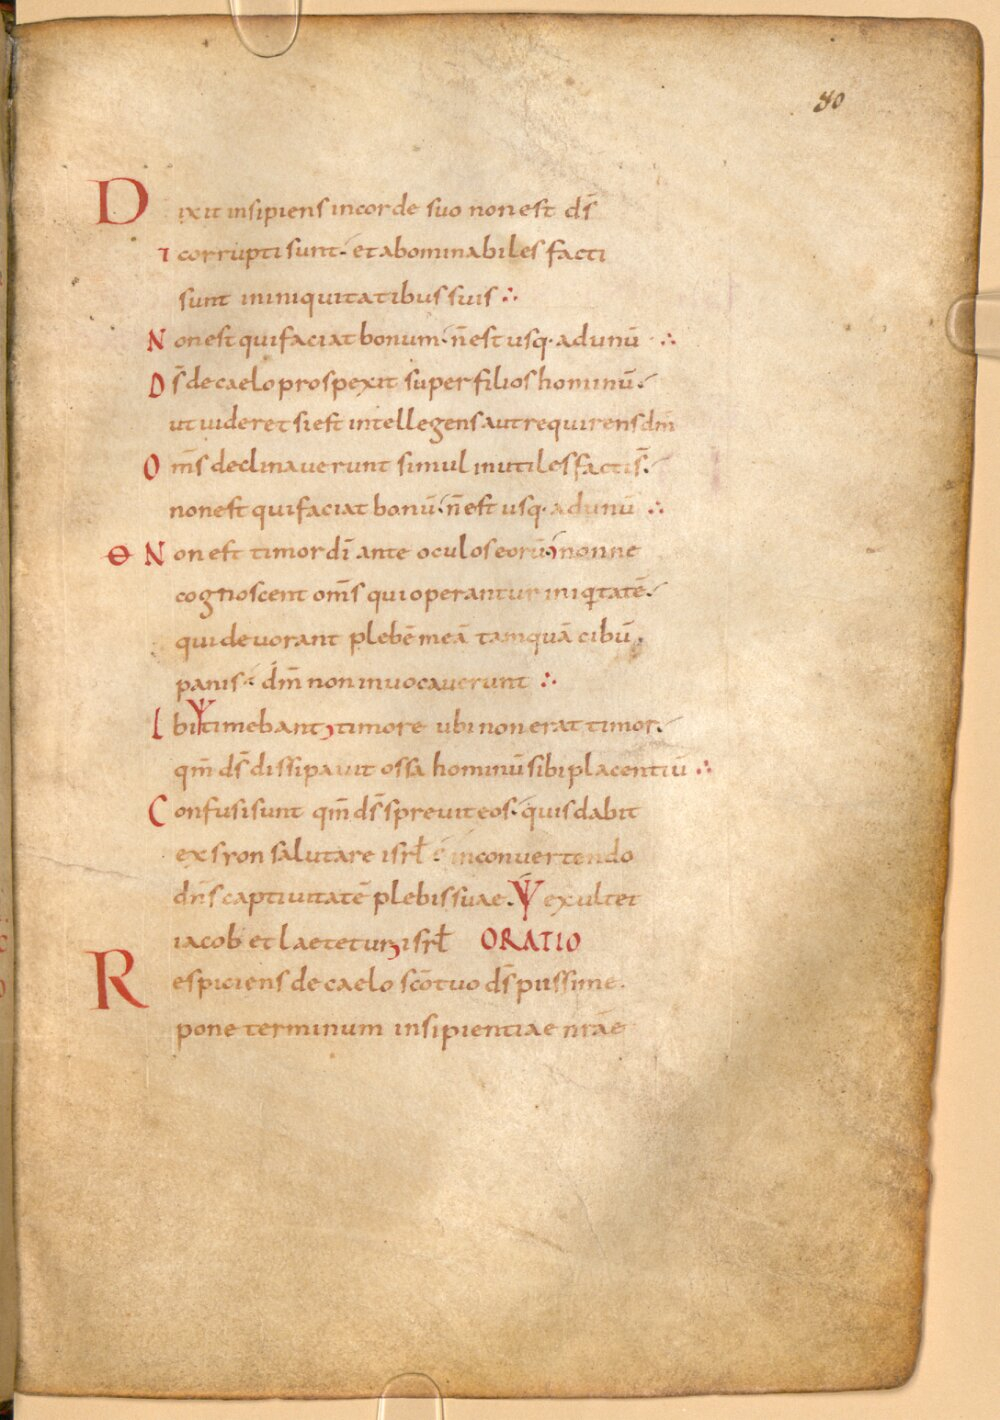 80
Dixit insipiens in corde suo non est dš
⁊ corrupti sunt· et abominabiles facti
sunt in iniquitatibus suis ∴
Non est qui faciat bonum· ñ est usq· ad unū ∴
Dš de caelo prospexit super filios hominū·
ut uideret si est intellegens aut requirens dm̄
Om̄s declinauerunt simul inutiles facti s̄·
non est qui faciat bonū· ñ est usq· ad unū ∴
Θ Non est timor dī ante oculos eorū nonne
cognoscent om̄s qui operantur iniqitatē·
qui deuorant plebē meā tamquā cibū
panis· dm̄ non inuocauerunt ∴
Ibi timebant timore ubi non erat timor·
qm̄ dš dissipauit ossa hominū sibi placentiū ∴
Confusi sunt qm̄ dš spreuit eos· quis dabit
ex sion salutare isrł· in conuertendo
dn̄s captiuitatē plebis suae· exultet
iacob et laetetur isrł ORATIO
Respiciens de caelo sc̄o tuo dš piissime·
pone terminum insipientiae nr̄ae